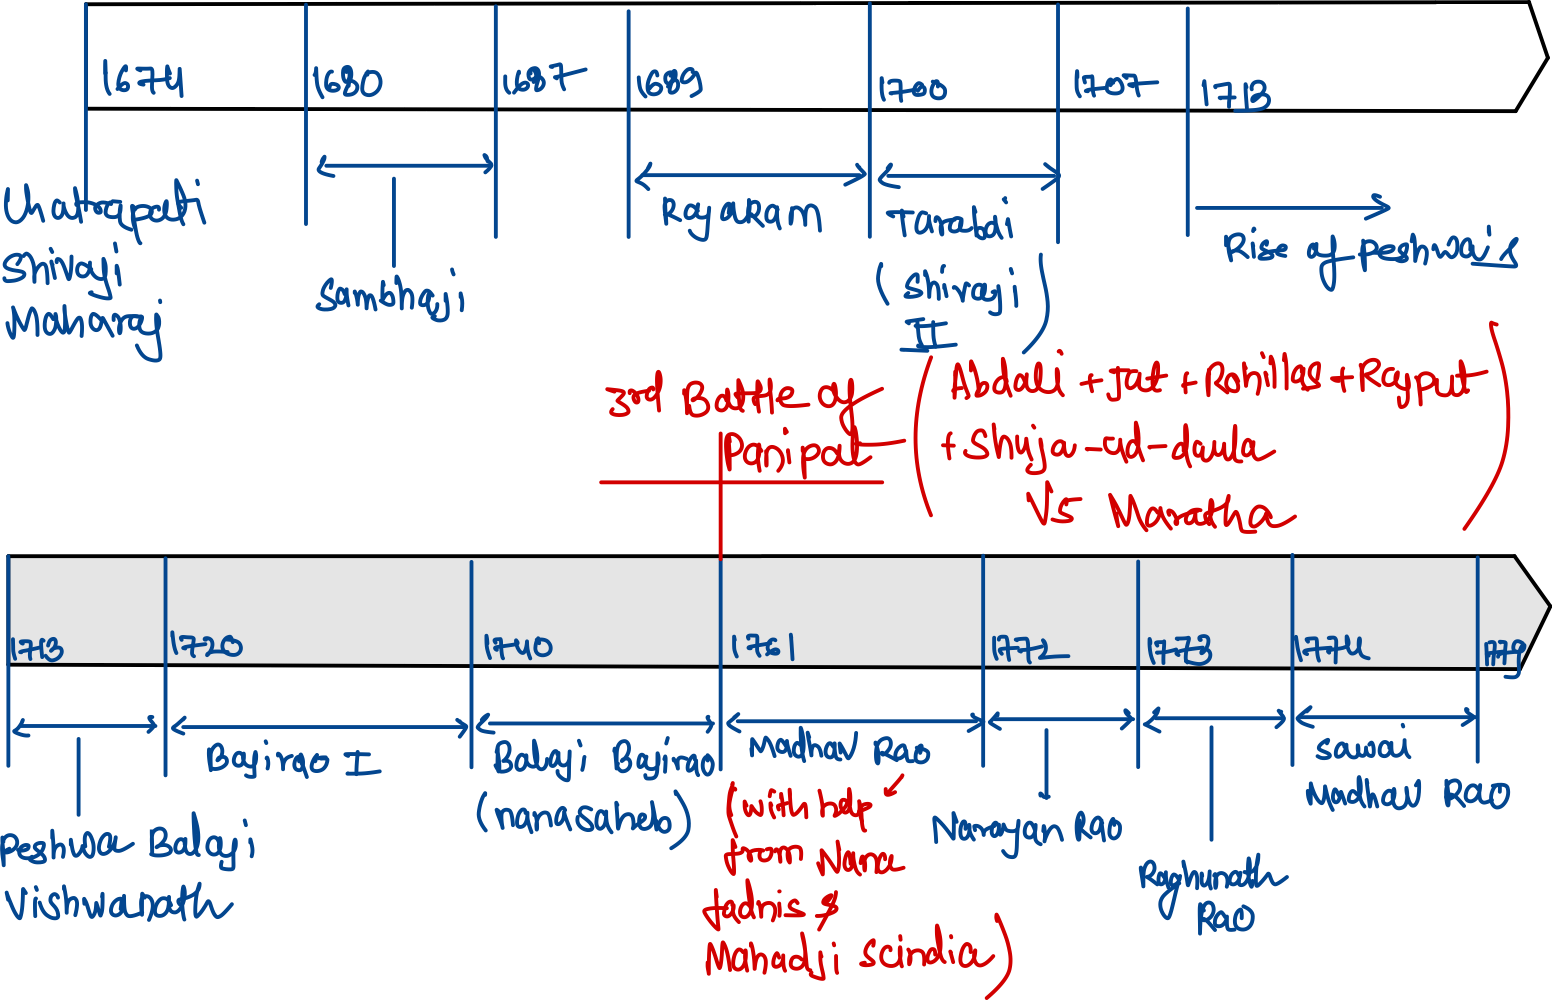 1674 1680 1687 1689 1700 1707 1713
Chatrapati
Shivaji
Maharaj
Sambhaji
Rajaram
Tarabai
(Shivaji
II)
Rise of peshwais
3rd Battle of
Panipat
(Abdali + Jat + Rohillas + Rajput
+ Shuja-ud-daula
Vs Maratha)
1713 1720 1740 1761 1772 1773 1774 1779
Peshwa Balaji
Vishwanath
Bajirao I
Balaji Bajirao
(nanasaheb)
Madhav Rao
(with help
from Nana
fadnis &
Mahadji scindia)
Narayan Rao
Raghunath
Rao
Sawai
Madhav Rao